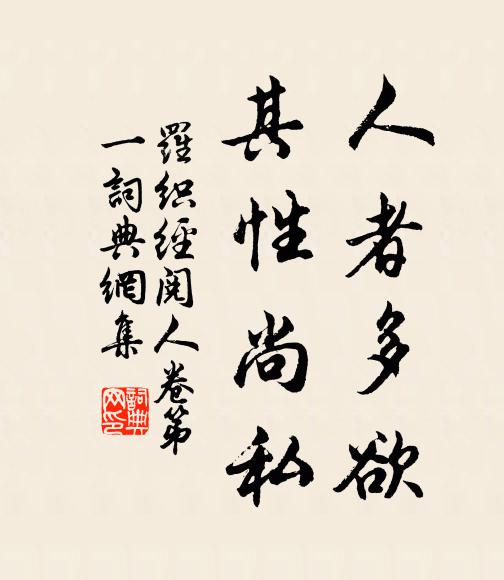 人者多欲
其性尚私
羅織經閱人卷第
一詞典網集
詞典
网印